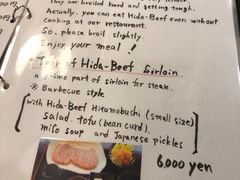 They are broiled hard and getting tough.
Actually, you can eat Hida-Beef even without
cooking at our restaurant.
So, please broil slightly.
Enjoy your meal!
Tray of Hida-Beef Sirloin
a prime part of sirloin for steak.
※ Barbecue style
with Hida-Beef Hitsumabushi (small size)
salad. tofu (bean curd).
miso soup and Japanese pickles
6,000 yen